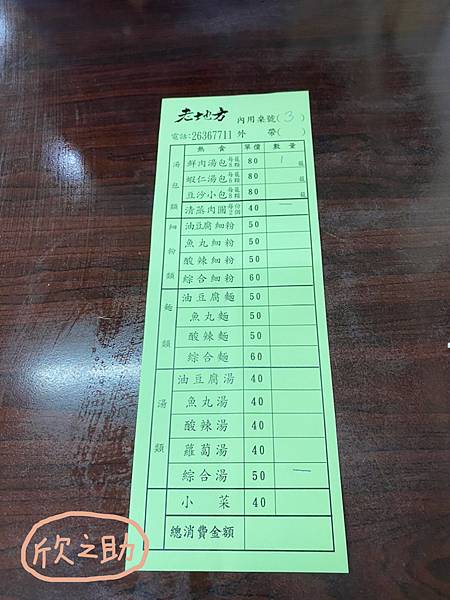 老地方 內用桌號( 3 )
電話:26367711 外 帶( )
熱食 單價 數量
湯包類
鮮肉湯包 每籠8粒 80 1 籠
蝦仁湯包 每籠8粒 80 籠
豆沙小包 每籠8粒 80 籠
清蒸肉圓 每份2個 40 一
細粉類
油豆腐細粉 50
魚丸細粉 50
酸辣細粉 50
綜合細粉 60
麵類
油豆腐麵 50
魚丸麵 50
酸辣麵 50
綜合麵 60
湯類
油豆腐湯 40
魚丸湯 40
酸辣湯 40
蘿蔔湯 40
綜合湯 50 一
小菜 40
總消費金額
欣之助